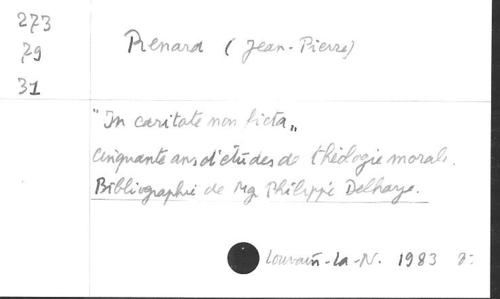 273
79
31
Renard (Jean-Pierre)
"In caritate non ficta„
Cinquante ans d'études de théologie morale.
Bibliographie de Mg Philippe Delhaye.
Louvain-la-N. 1983 8: